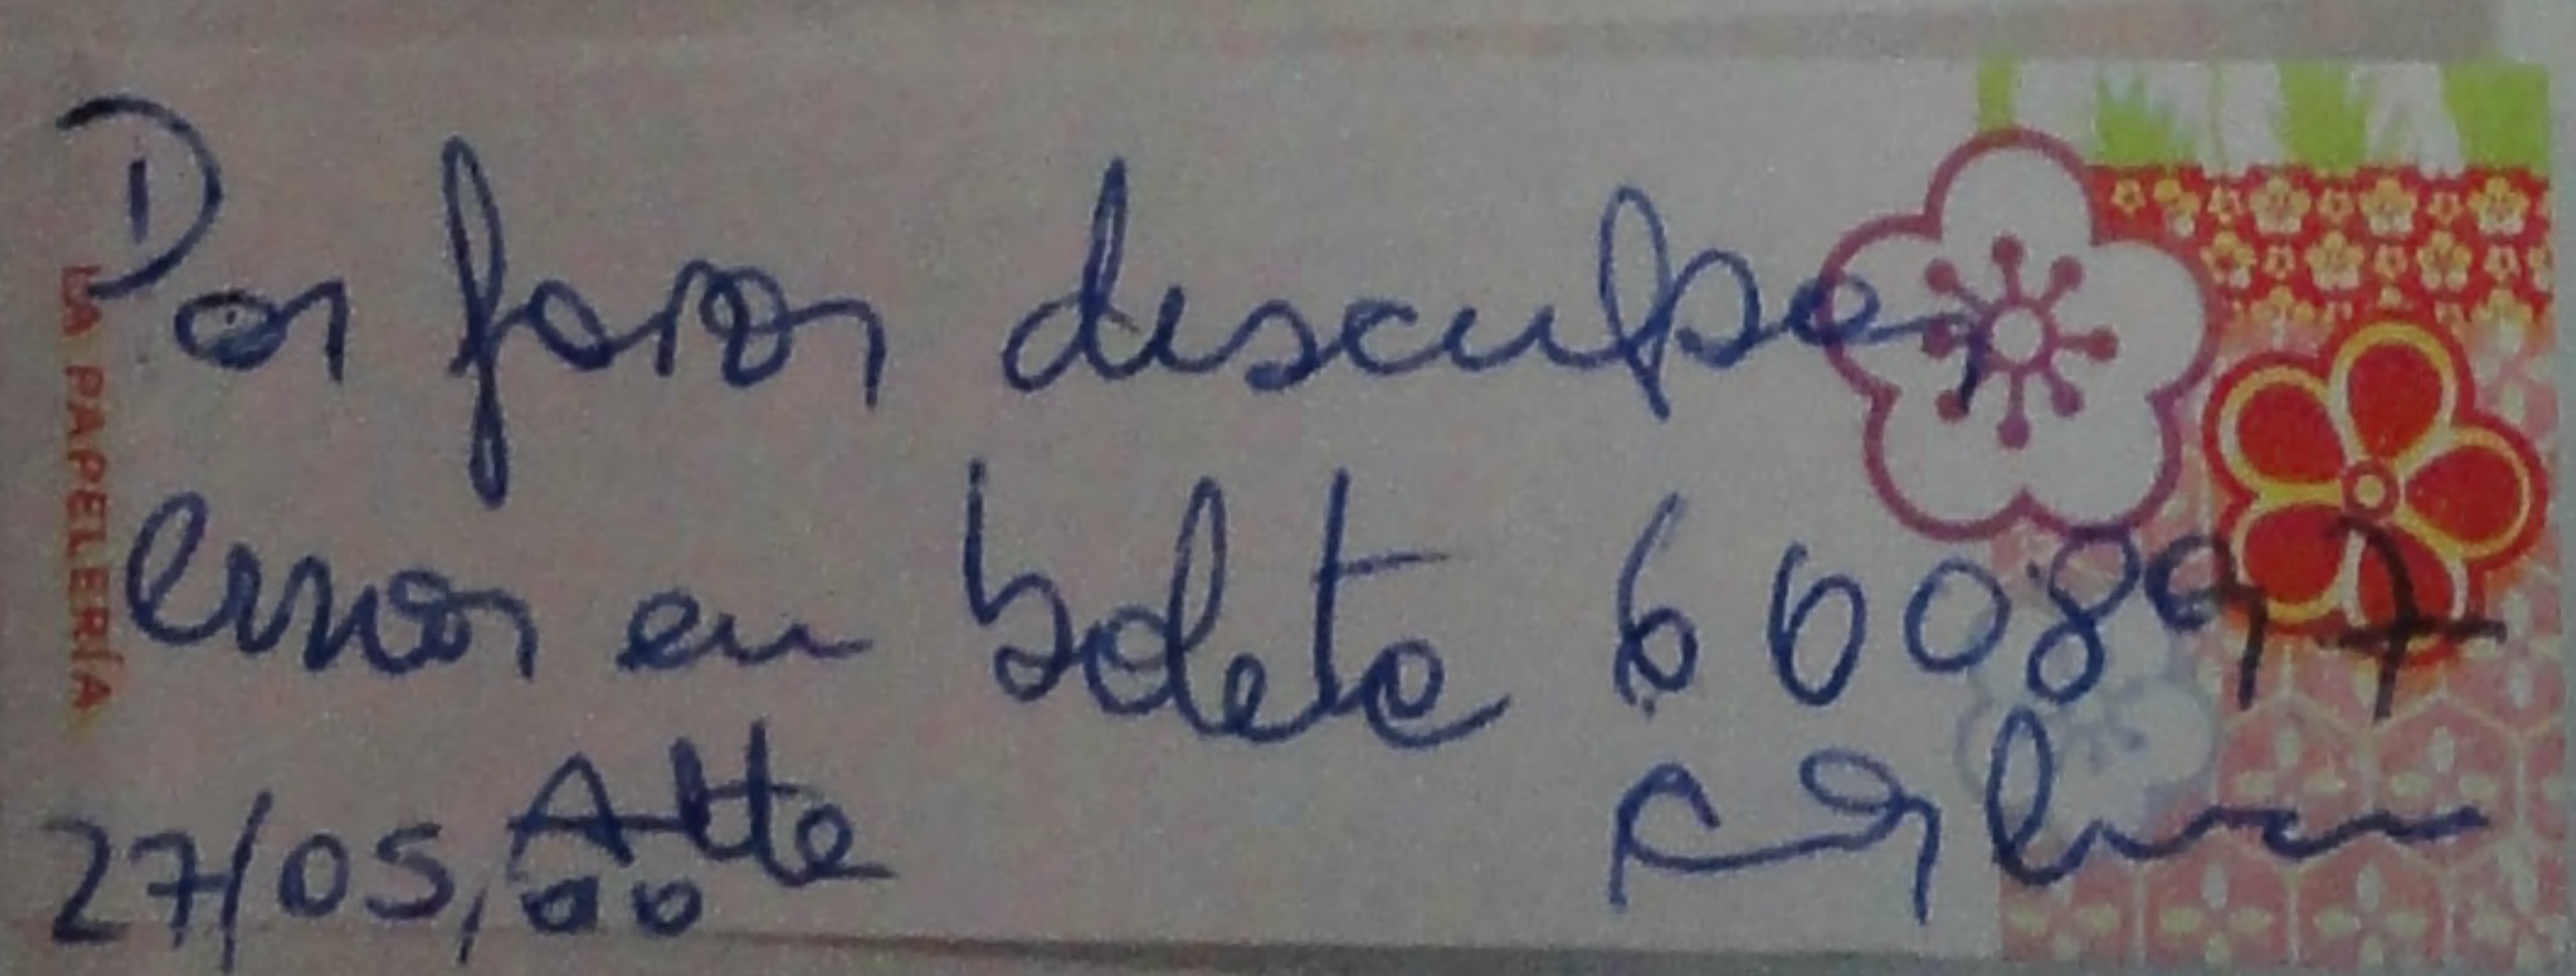 LA PAPELERÍA
Por favor disculpe,
error en boleta 660897
Atte
27/05,00